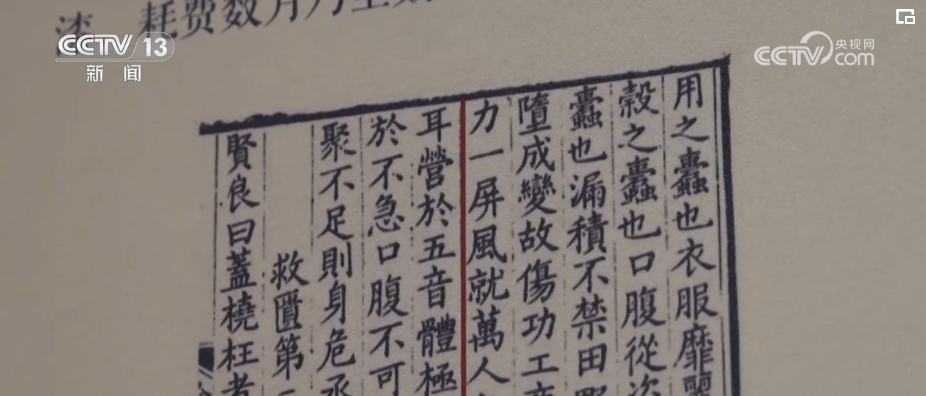 CCTV 13
新闻
央视网
CCTV.com
耗费数月
用之蠹也衣服靡麗
穀之蠹也口腹從恣
蠹也漏積不禁田野
墮成變故傷功工商
力一屏風就萬人
耳營於五音體極
於不急口腹不可
聚不足則身危丞
救匱第
賢良曰蓋橈枉者